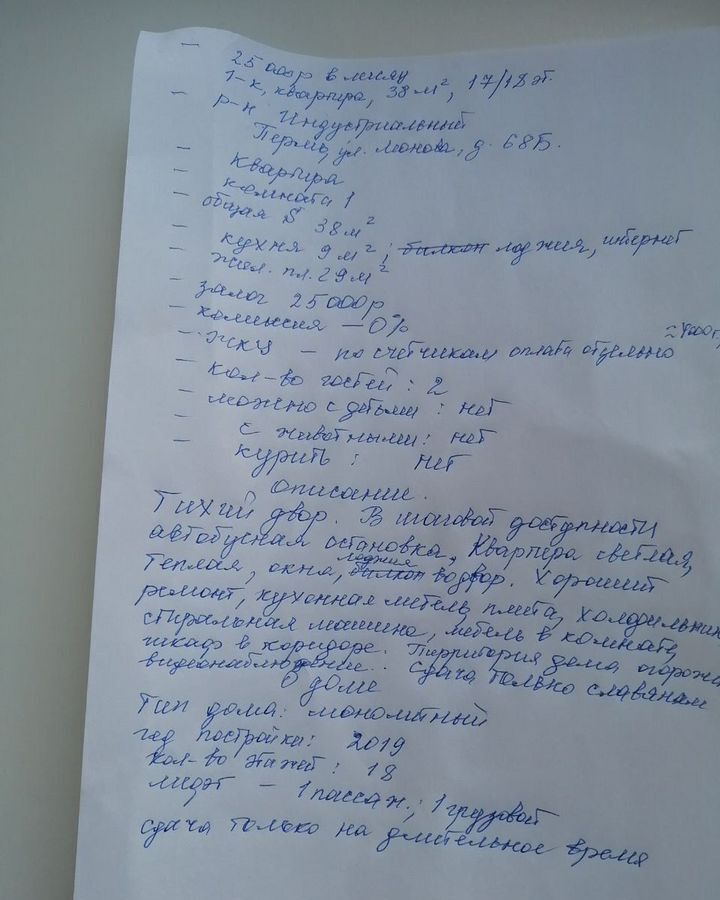 25000р в месяц
1-к, квартира, 38 м², 17/18 эт.
р-н Индустриальный
Пермь, ул. Монова, д. 68Б.
квартира
комната 1
общая S 38 м²
кухня 9 м²; балкон лоджия, интернет
жил. пл. 29 м²
залог 25000р
комиссия – 0%
≈4000р,
ЖКЦ – по счётчикам оплата отдельно
кол-во гостей: 2
можно с детьми: нет
с животными: нет
курить: нет
описание.
Тихий двор. В шаговой доступности
автобусная остановка, квартира светлая,
лоджия
теплая, окна, балкон во двор. Хороший
ремонт, кухонная мебель, плита, холодильник
стиральная машина, мебель в комнате,
шкаф в коридоре. Территория дома огорожа
видеонаблюдение.. сдача только славянам
О доме
Тип дома: монолитный
год постройки: 2019
кол-во этажей: 18
лифт – 1 пассаж.; 1 грузовой
сдача только на длительное время